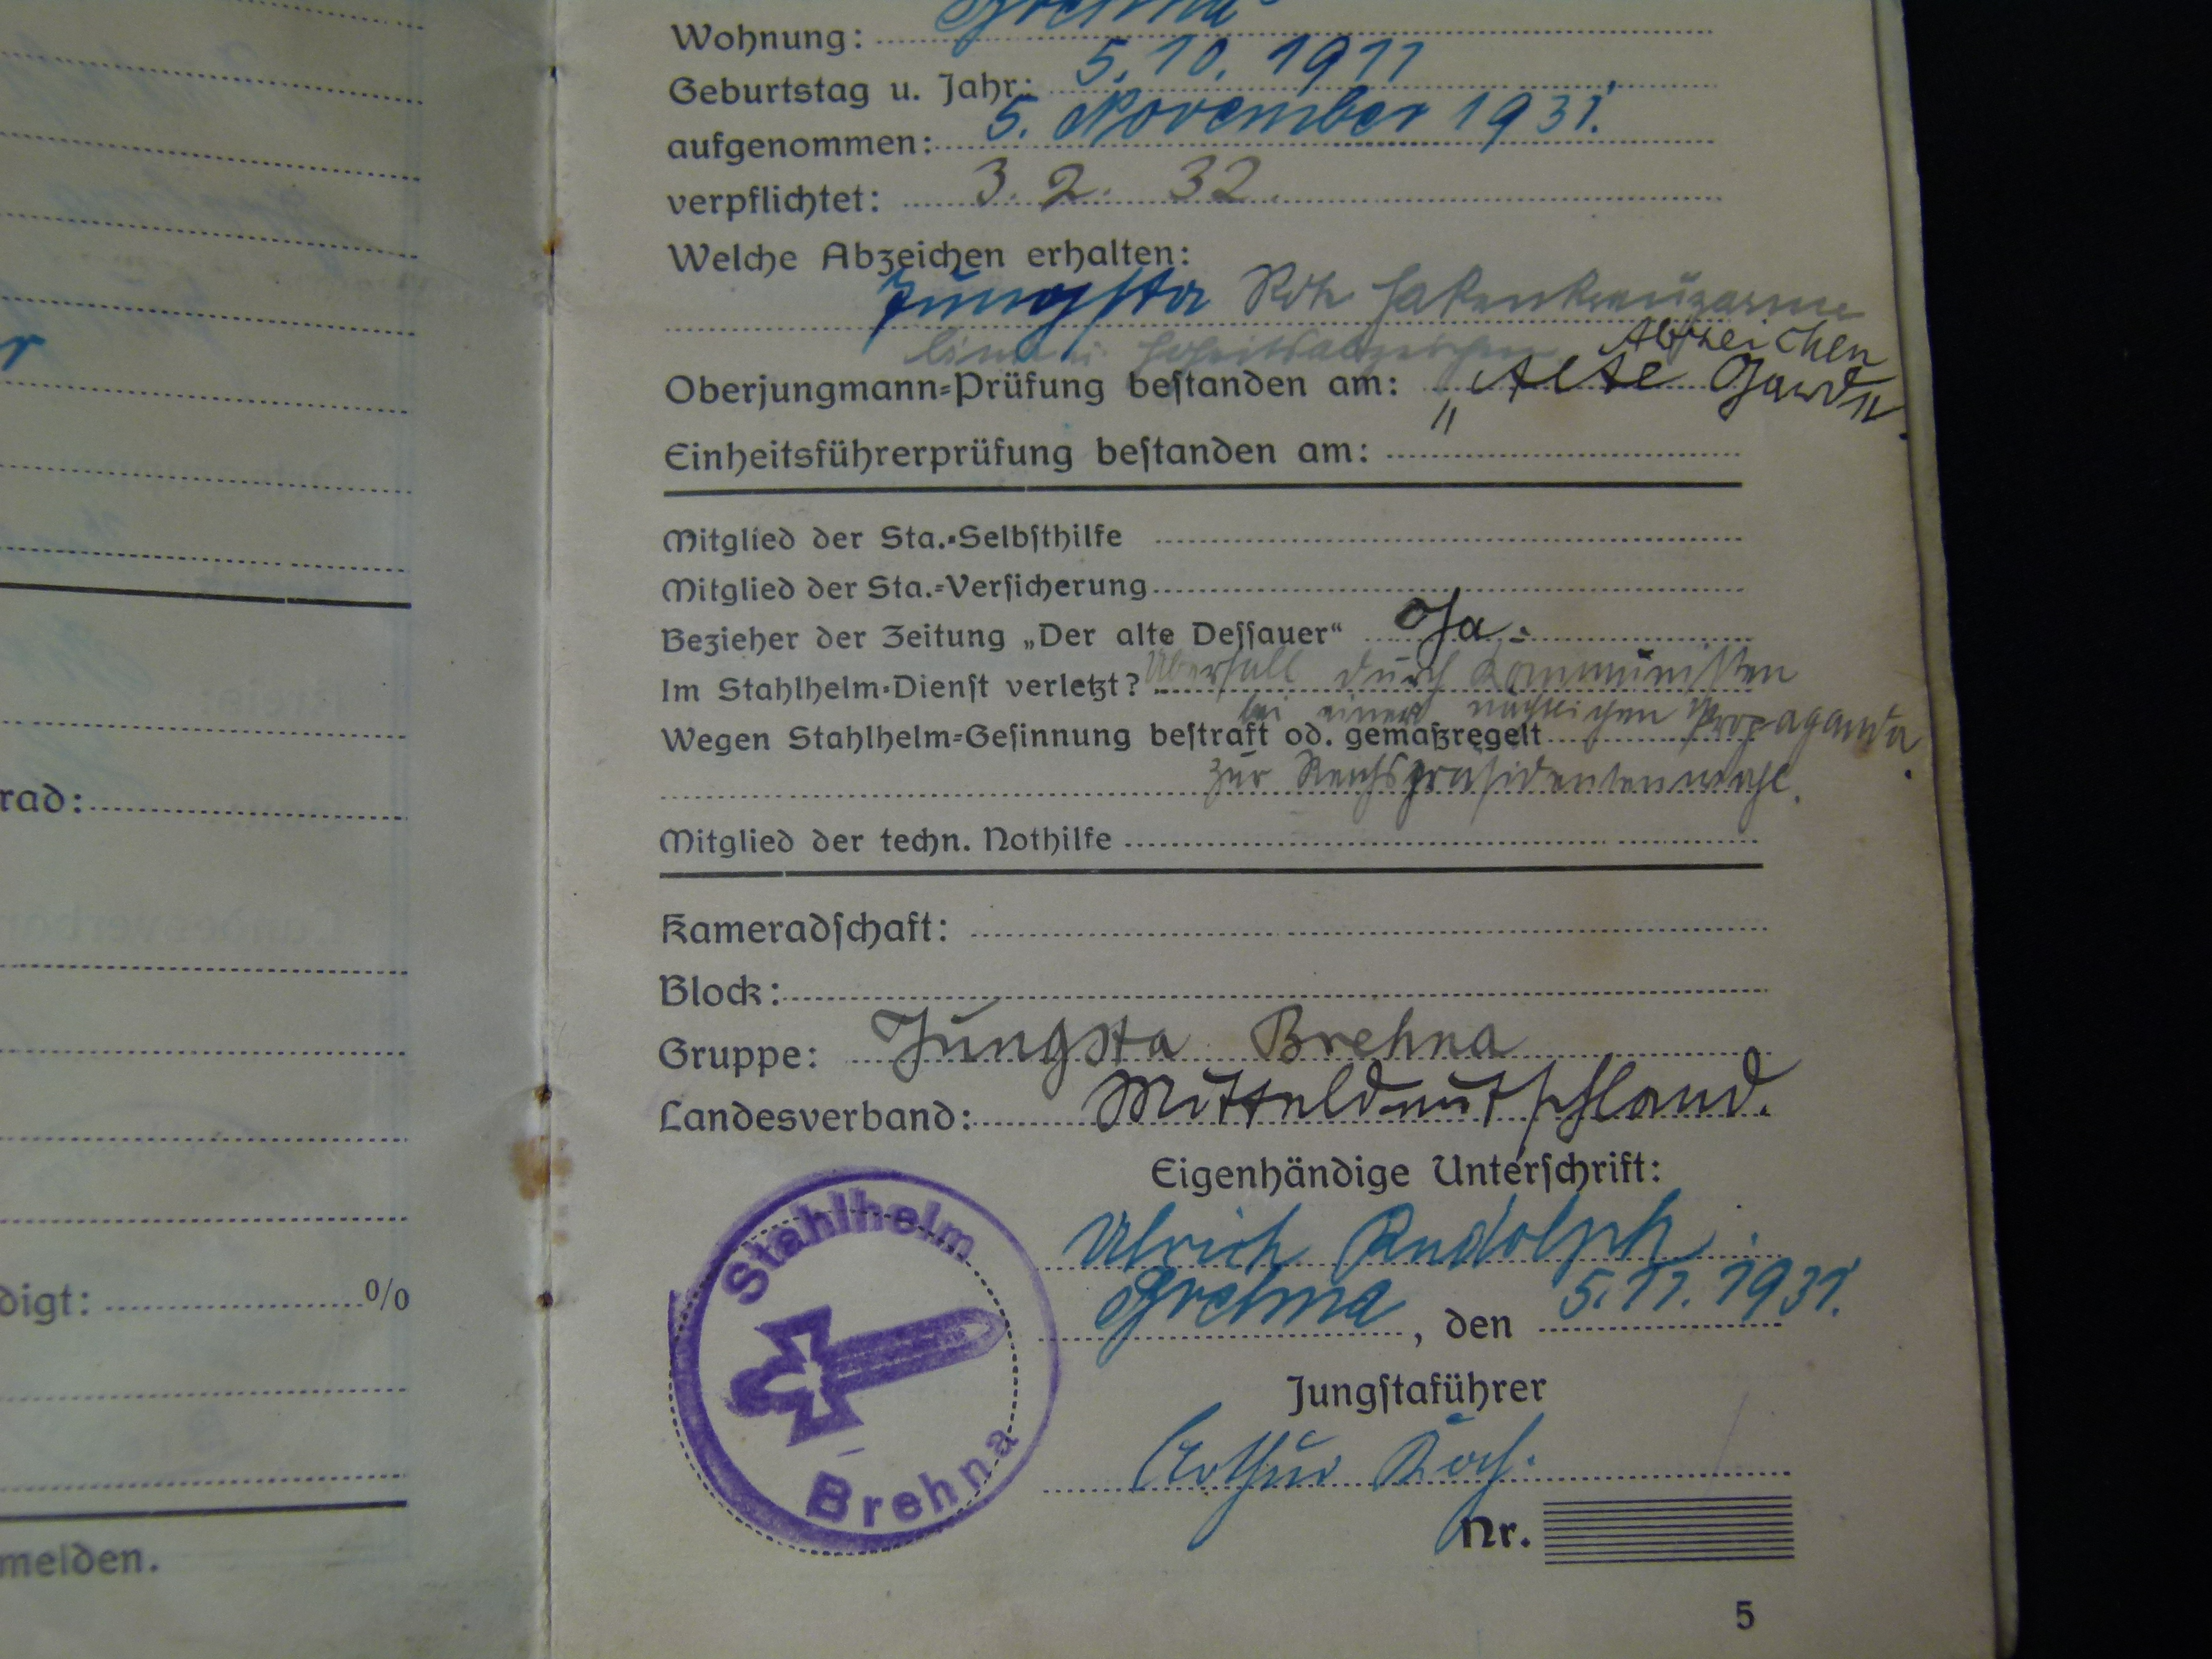 r
rad:
digt: 0/0
melden.
Wohnung: Brehna
Geburtstag u. Jahr: 5. 10. 1911
aufgenommen: 5. November 1931.
verpflichtet: 3. 2. 32.
Welche Abzeichen erhalten:
Jungsta Rote Hakenkreuzarm
binde u. Hoheitsabzeichen. Abzeichen
Oberjungmann-Prüfung bestanden am: "Alte Garde".
Einheitsführerprüfung bestanden am:
Mitglied der Sta.-Selbsthilfe
Mitglied der Sta.-Versicherung
Bezieher der Zeitung „Der alte Dessauer“ Ja.
Im Stahlhelm-Dienst verletzt? Überfall durch Kommunisten
bei einer nächtlichen Propaganda
Wegen Stahlhelm-Gesinnung bestraft od. gemaßregelt
zur Reichspräsidentenwahl.
Mitglied der techn. Nothilfe
Kameradschaft:
Block:
Gruppe: Jungsta Brehna
Landesverband: Mitteldeutschland.
Eigenhändige Unterschrift:
Ulrich Rudolph.
Brehna, den 5.11.1931.
Jungstaführer
Arthur Koch.
Nr.
Stahlhelm
Brehna
5